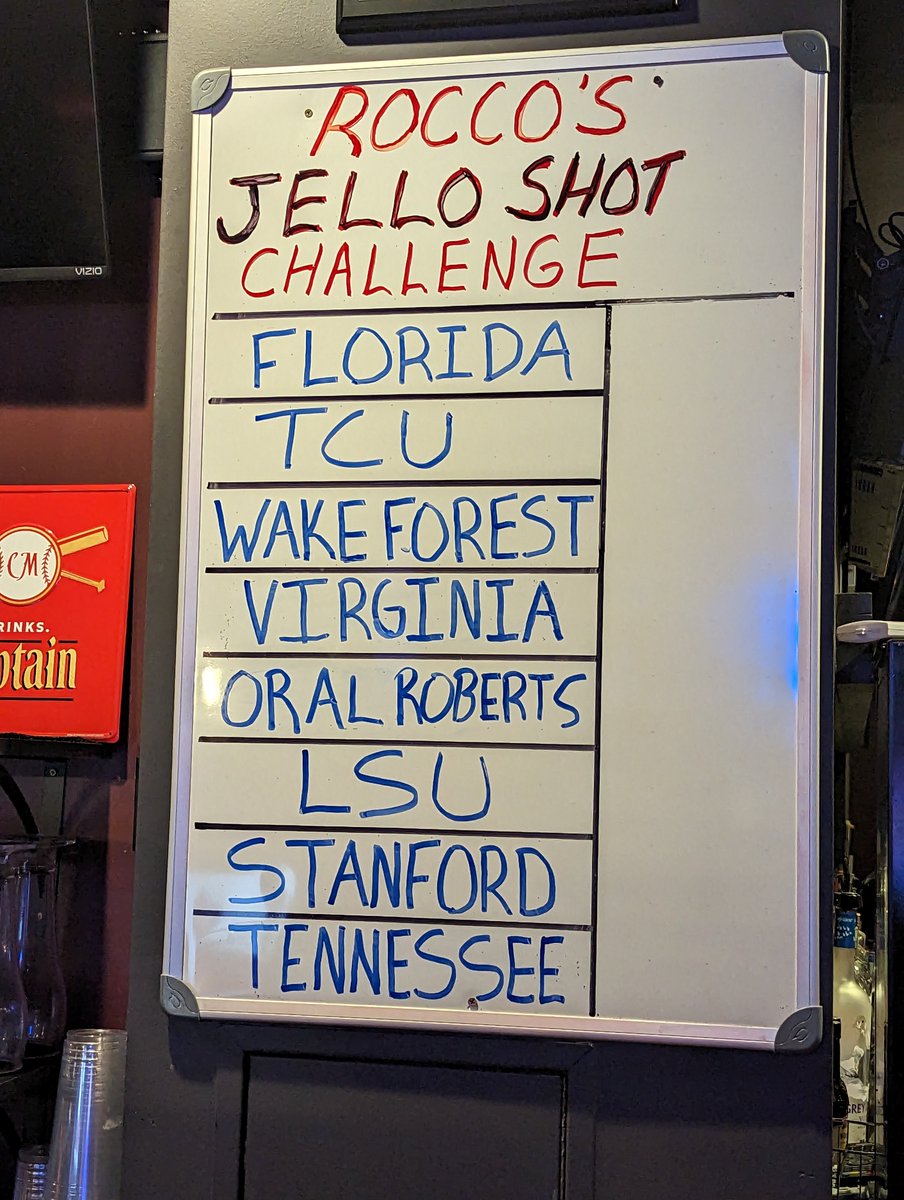 VIZIO
ROCCO'S
JELLO SHOT
CHALLENGE
FLORIDA
TCU
WAKE FOREST
VIRGINIA
ORAL ROBERTS
LSU
STANFORD
TENNESSEE
CM